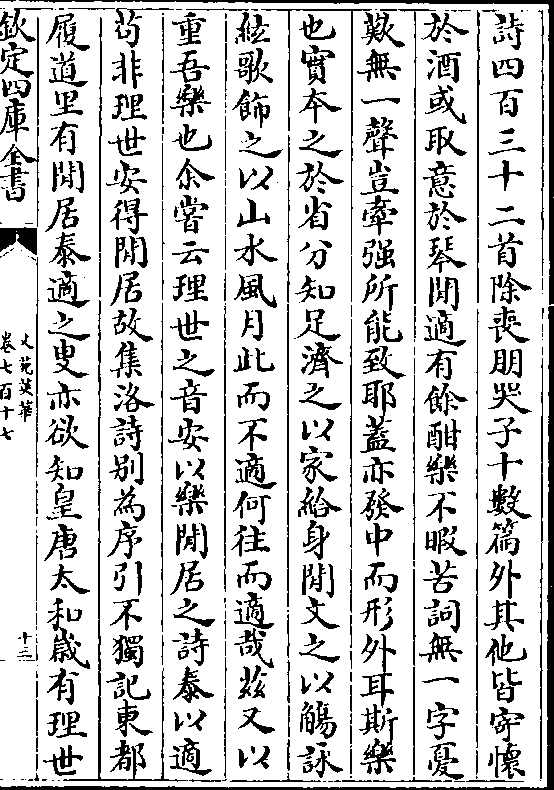 詩四百三十二首除喪朋哭子十數篇外其他皆寄懷
於酒或取意於琴閒適有餘酣樂不暇苦詞無一字憂
歎無一聲豈牽强所能致耶蓋亦發中而形外耳斯樂
也實本之於省分知足濟之以家給身閒文之以觴詠
絃歌飾之以山水風月此而不適何往而適哉兹又以
重吾樂也余嘗云理世之音安以樂閒居之詩泰以適
苟非理世安得閒居故集洛詩别為序引不獨記東都
履道里有閒居泰適之叟亦欲知皇唐太和歲有理世
欽定四庫全書
文苑英華
卷七百十七
十三